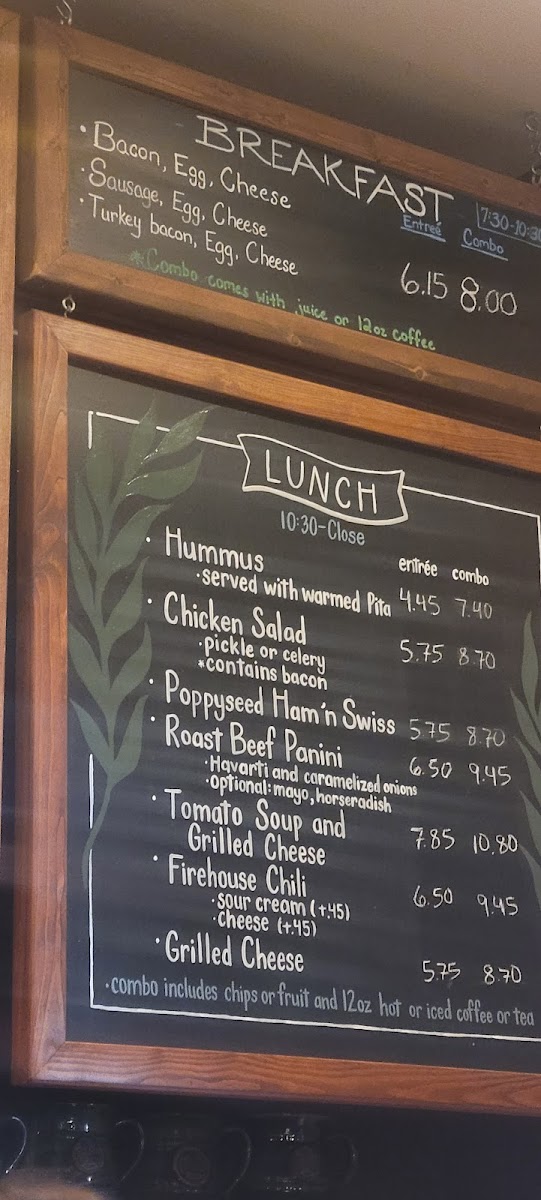 BREAKFAST
7:30-10:30
Entreé Combo
· Bacon, Egg, Cheese
· Sausage, Egg, Cheese
· Turkey bacon, Egg, Cheese
6.15 8.00
*Combo comes with juice or 12oz coffee
LUNCH
10:30-Close
entrée combo
· Hummus
· served with warmed Pita 4.45 7.40
· Chicken Salad 5.75 8.70
· pickle or celery
*contains bacon
· Poppyseed Ham 'n Swiss 5.75 8.70
· Roast Beef Panini 6.50 9.45
· Havarti and caramelized onions
· optional: mayo, horseradish
· Tomato Soup and
Grilled Cheese 7.85 10.80
· Firehouse Chili 6.50 9.45
· sour cream (+.45)
· cheese (+.45)
· Grilled Cheese 5.75 8.70
· combo includes chips or fruit and 12oz hot or iced coffee or tea